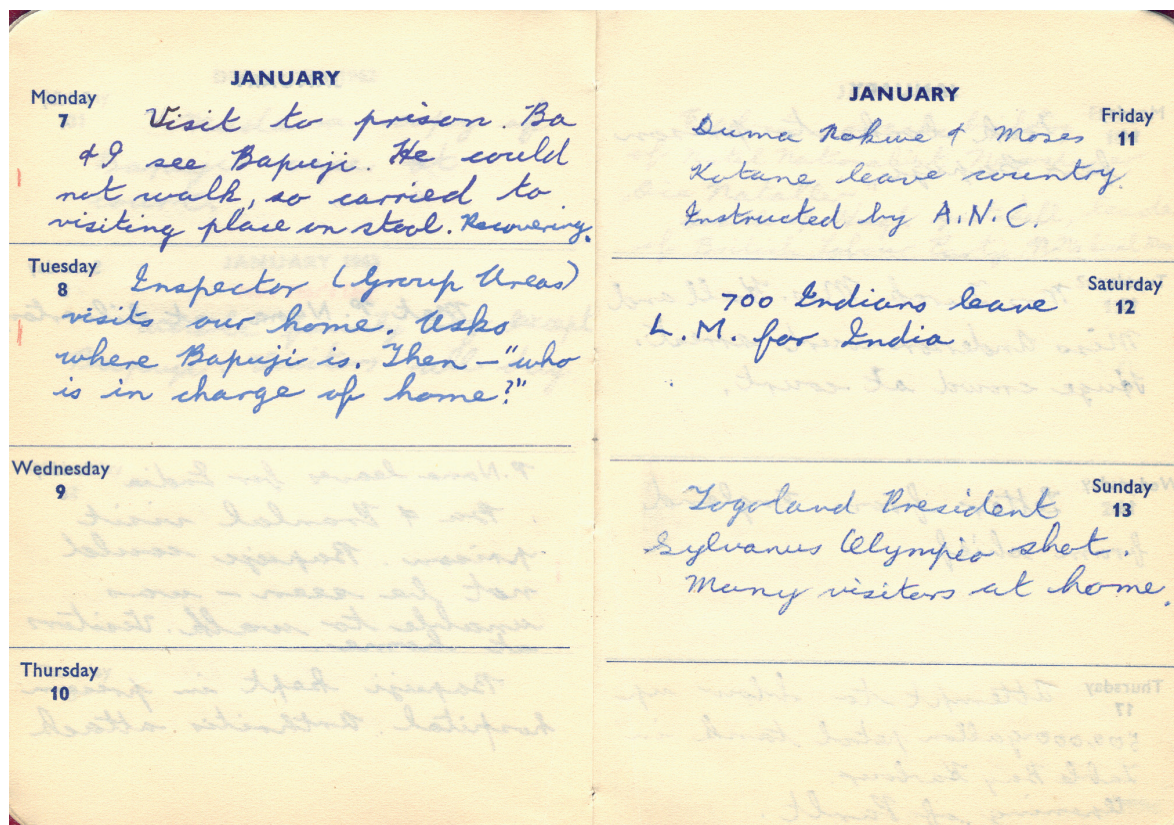 JANUARY
Monday
7
Visit to prison. Ba
& I see Bapuji. He could
not walk, so carried to
visiting place on stool. Recovering.
Tuesday
8
Inspector (Group Areas)
visits our home. Asks
where Bapuji is. Then – "who
is in charge of home?"
Wednesday
9
Thursday
10
JANUARY
Friday
11
Duma Nokwe & Moses
Kotane leave country.
Instructed by A.N.C.
Saturday
12
700 Indians leave
L.M. for India
Sunday
13
Togoland President
Sylvanus Olympio shot.
Many visitors at home.